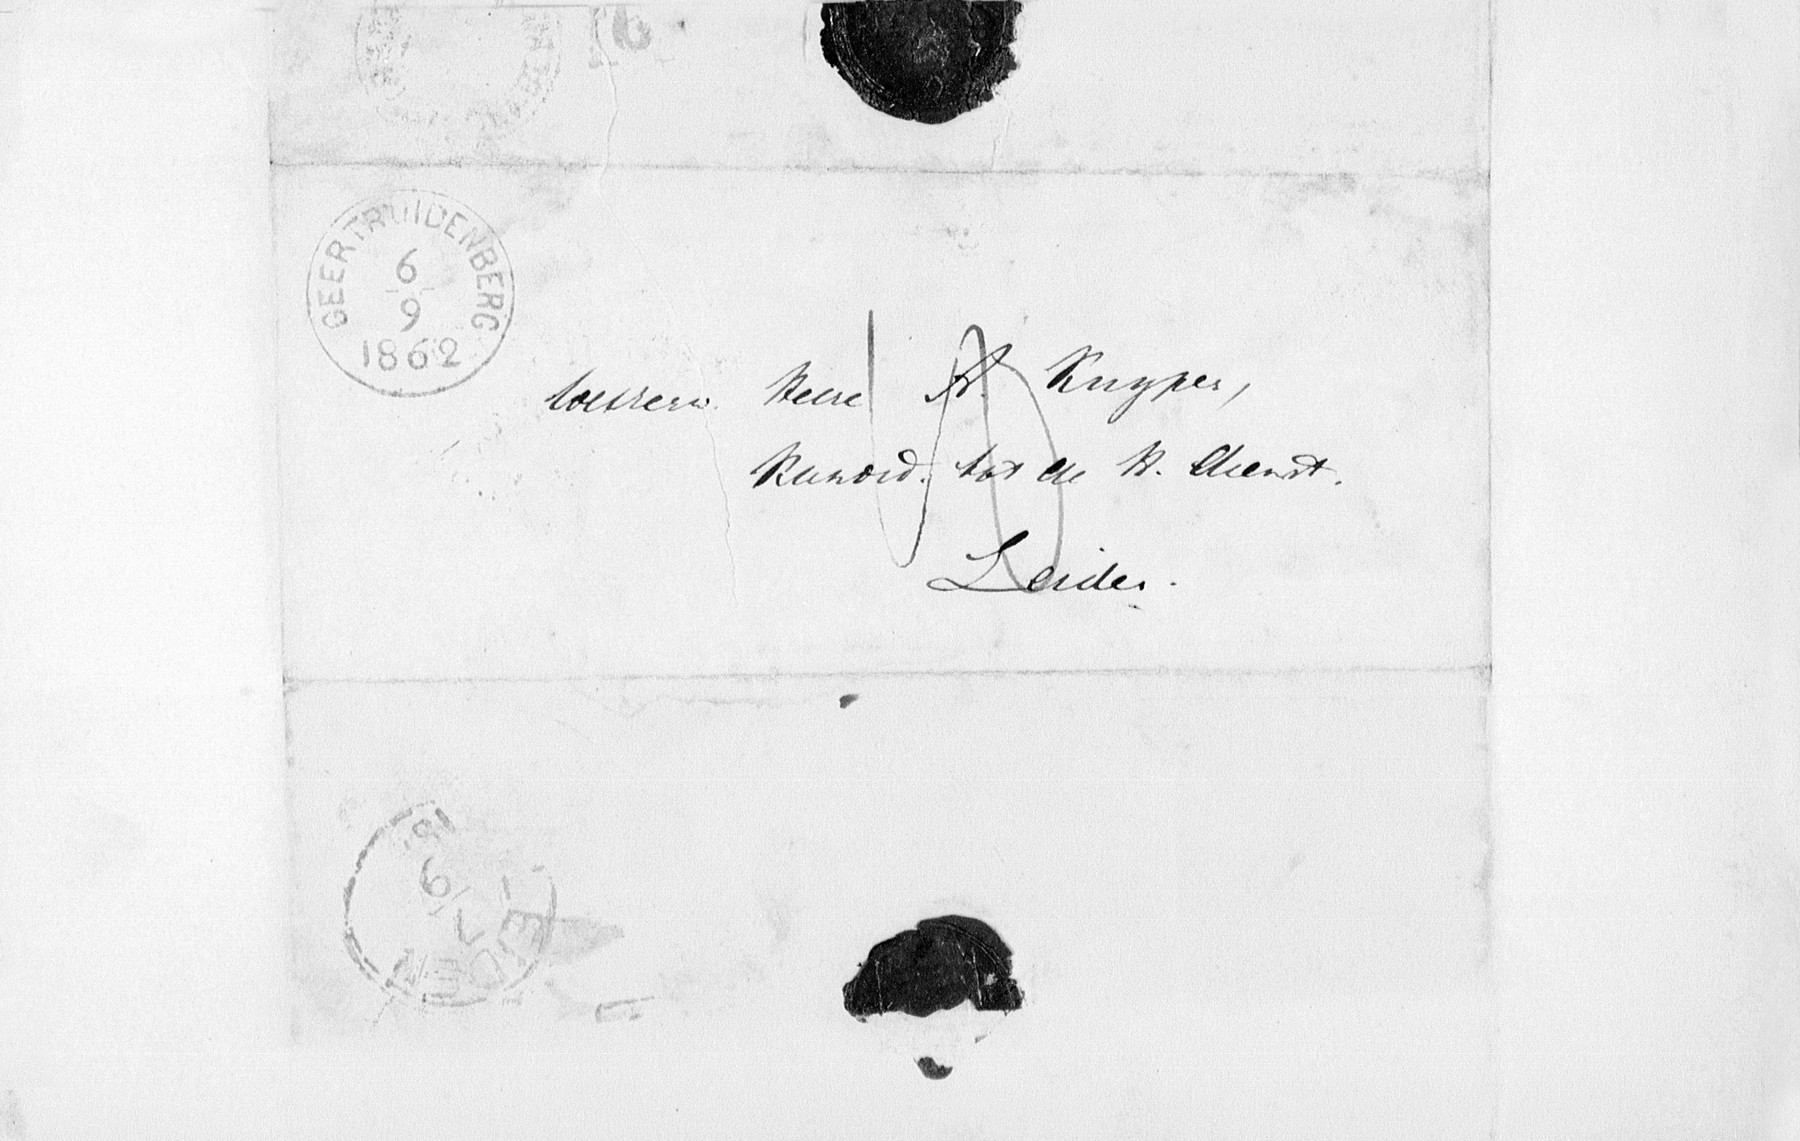 GEERTRUIDENBERG
6
9
1862
Weleerw. Heere A. Kuyper,
Kandid. tot de H. Dienst.
Leiden.
18
7/9
LEIDEN